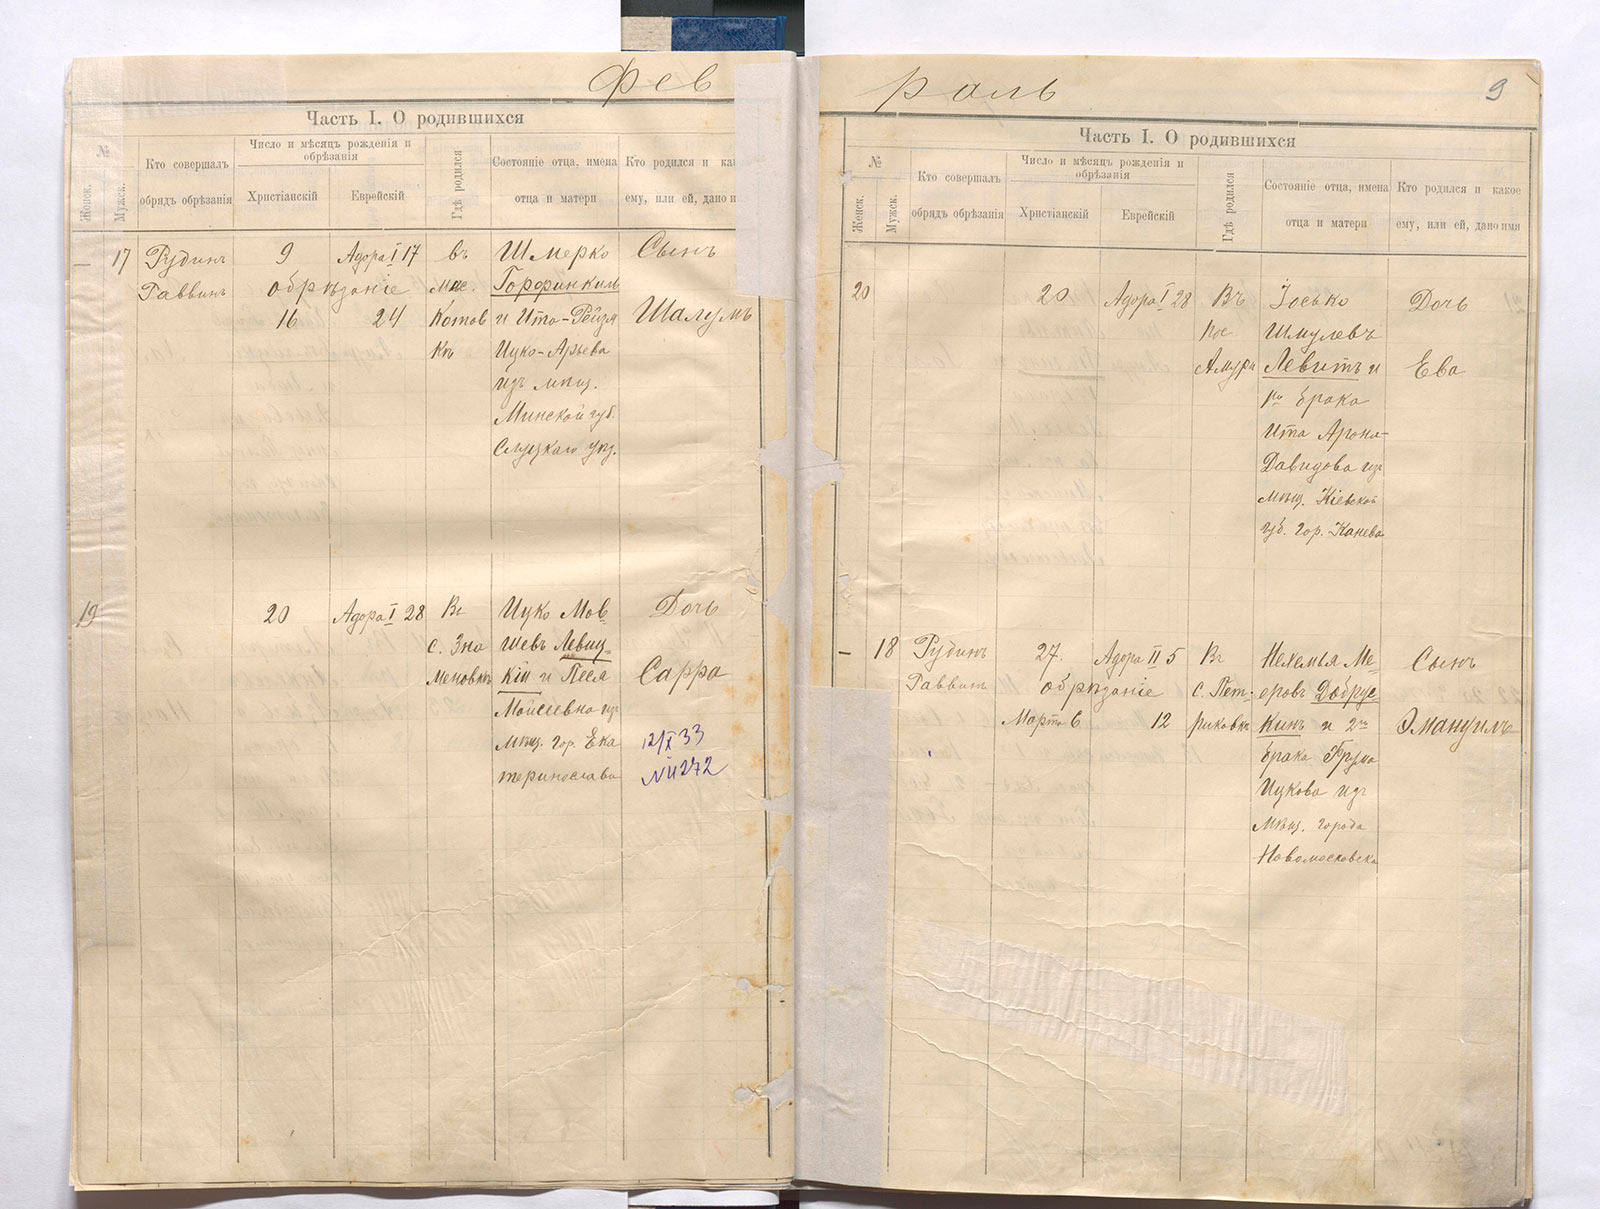 Фев
Часть I. О родившихся
№
Женск.
Мужск.
Кто совершалъ
обрядъ обрѣзанія
Число и мѣсяцъ рожденія и
обрѣзанія
Христіанскій
Еврейскій
Гдѣ родился
Состояніе отца, имена
отца и матери
Кто родился и как
ему, или ей, дано и
— 17 Рудинъ 9 Адора I 17 въ Шмерко Сынъ
Раввинъ обрѣзаніе мѣс. Горфинкиль
16 24 Котов и Ита-Рейзя Шалумъ
кѣ Ицко-Арьева
изъ мѣщ.
Минской губ.
Слуцкаго уѣз.
19 20 Адора I 28 Въ Ицко Мов- Дочь
с. Зна шевъ Левиц-
меновкѣ кій и Песя Сарра
Мойсеевна изъ
мѣщ. гор. Ека 12/X 33
теринослава № 11272
раль
9
Часть I. О родившихся
№
Женск.
Мужск.
Кто совершалъ
обрядъ обрѣзанія
Число и мѣсяцъ рожденія и
обрѣзанія
Христіанскій
Еврейскій
Гдѣ родился
Состояніе отца, имена
отца и матери
Кто родился и какое
ему, или ей, дано имя
20 20 Адора I 28 Въ Іосько Дочь
пос Шмулевъ
Амурѣ Левитъ и Ева
1го брака
Ита Арона-
Давидова изъ
мѣщ. Кіевской
губ. гор. Канева
— 18 Рудинъ 27. Адора II 5 Въ Нехемія Ме- Сынъ
Раввинъ обрѣзаніе с. Пет- еровъ Добрус-
Марта 6 12 риковкѣ кинъ и 2го Эмануилъ
брака Фрума
Ицкова изъ
мѣщ. города
Новомосковска